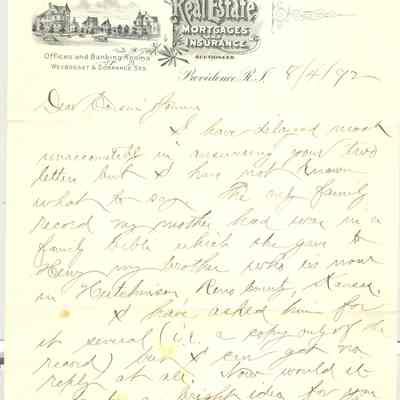 Real Estate
MORTGAGES
INSURANCE
AUCTIONEER
Offices and Banking Rooms
WEYBOSSET & DORRANCE STS.
Providence, R.I. 8/4/92
Dear Cousin
I have delayed most
unaccountably in answering your two
letters but I have not known
what to say. The only family
record my mother had was in a
family bible which she gave to
Henry my brother who is now
in Hutchinson Reno County, Kansas.
I have asked him for
it several (i.e. a copy only of the
record) but I can get no
reply at all. Now would it
a bright idea for you